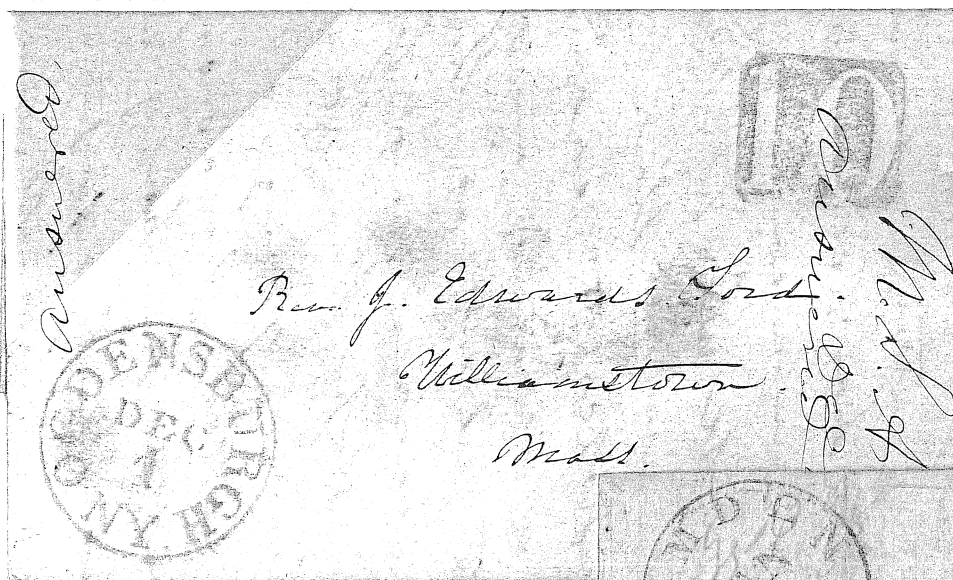 Answered.
10
Answered
Rev. J. Edwards Ford.
Williamstown.
Mass.
OGDENSBURGH N.Y.
DEC
1